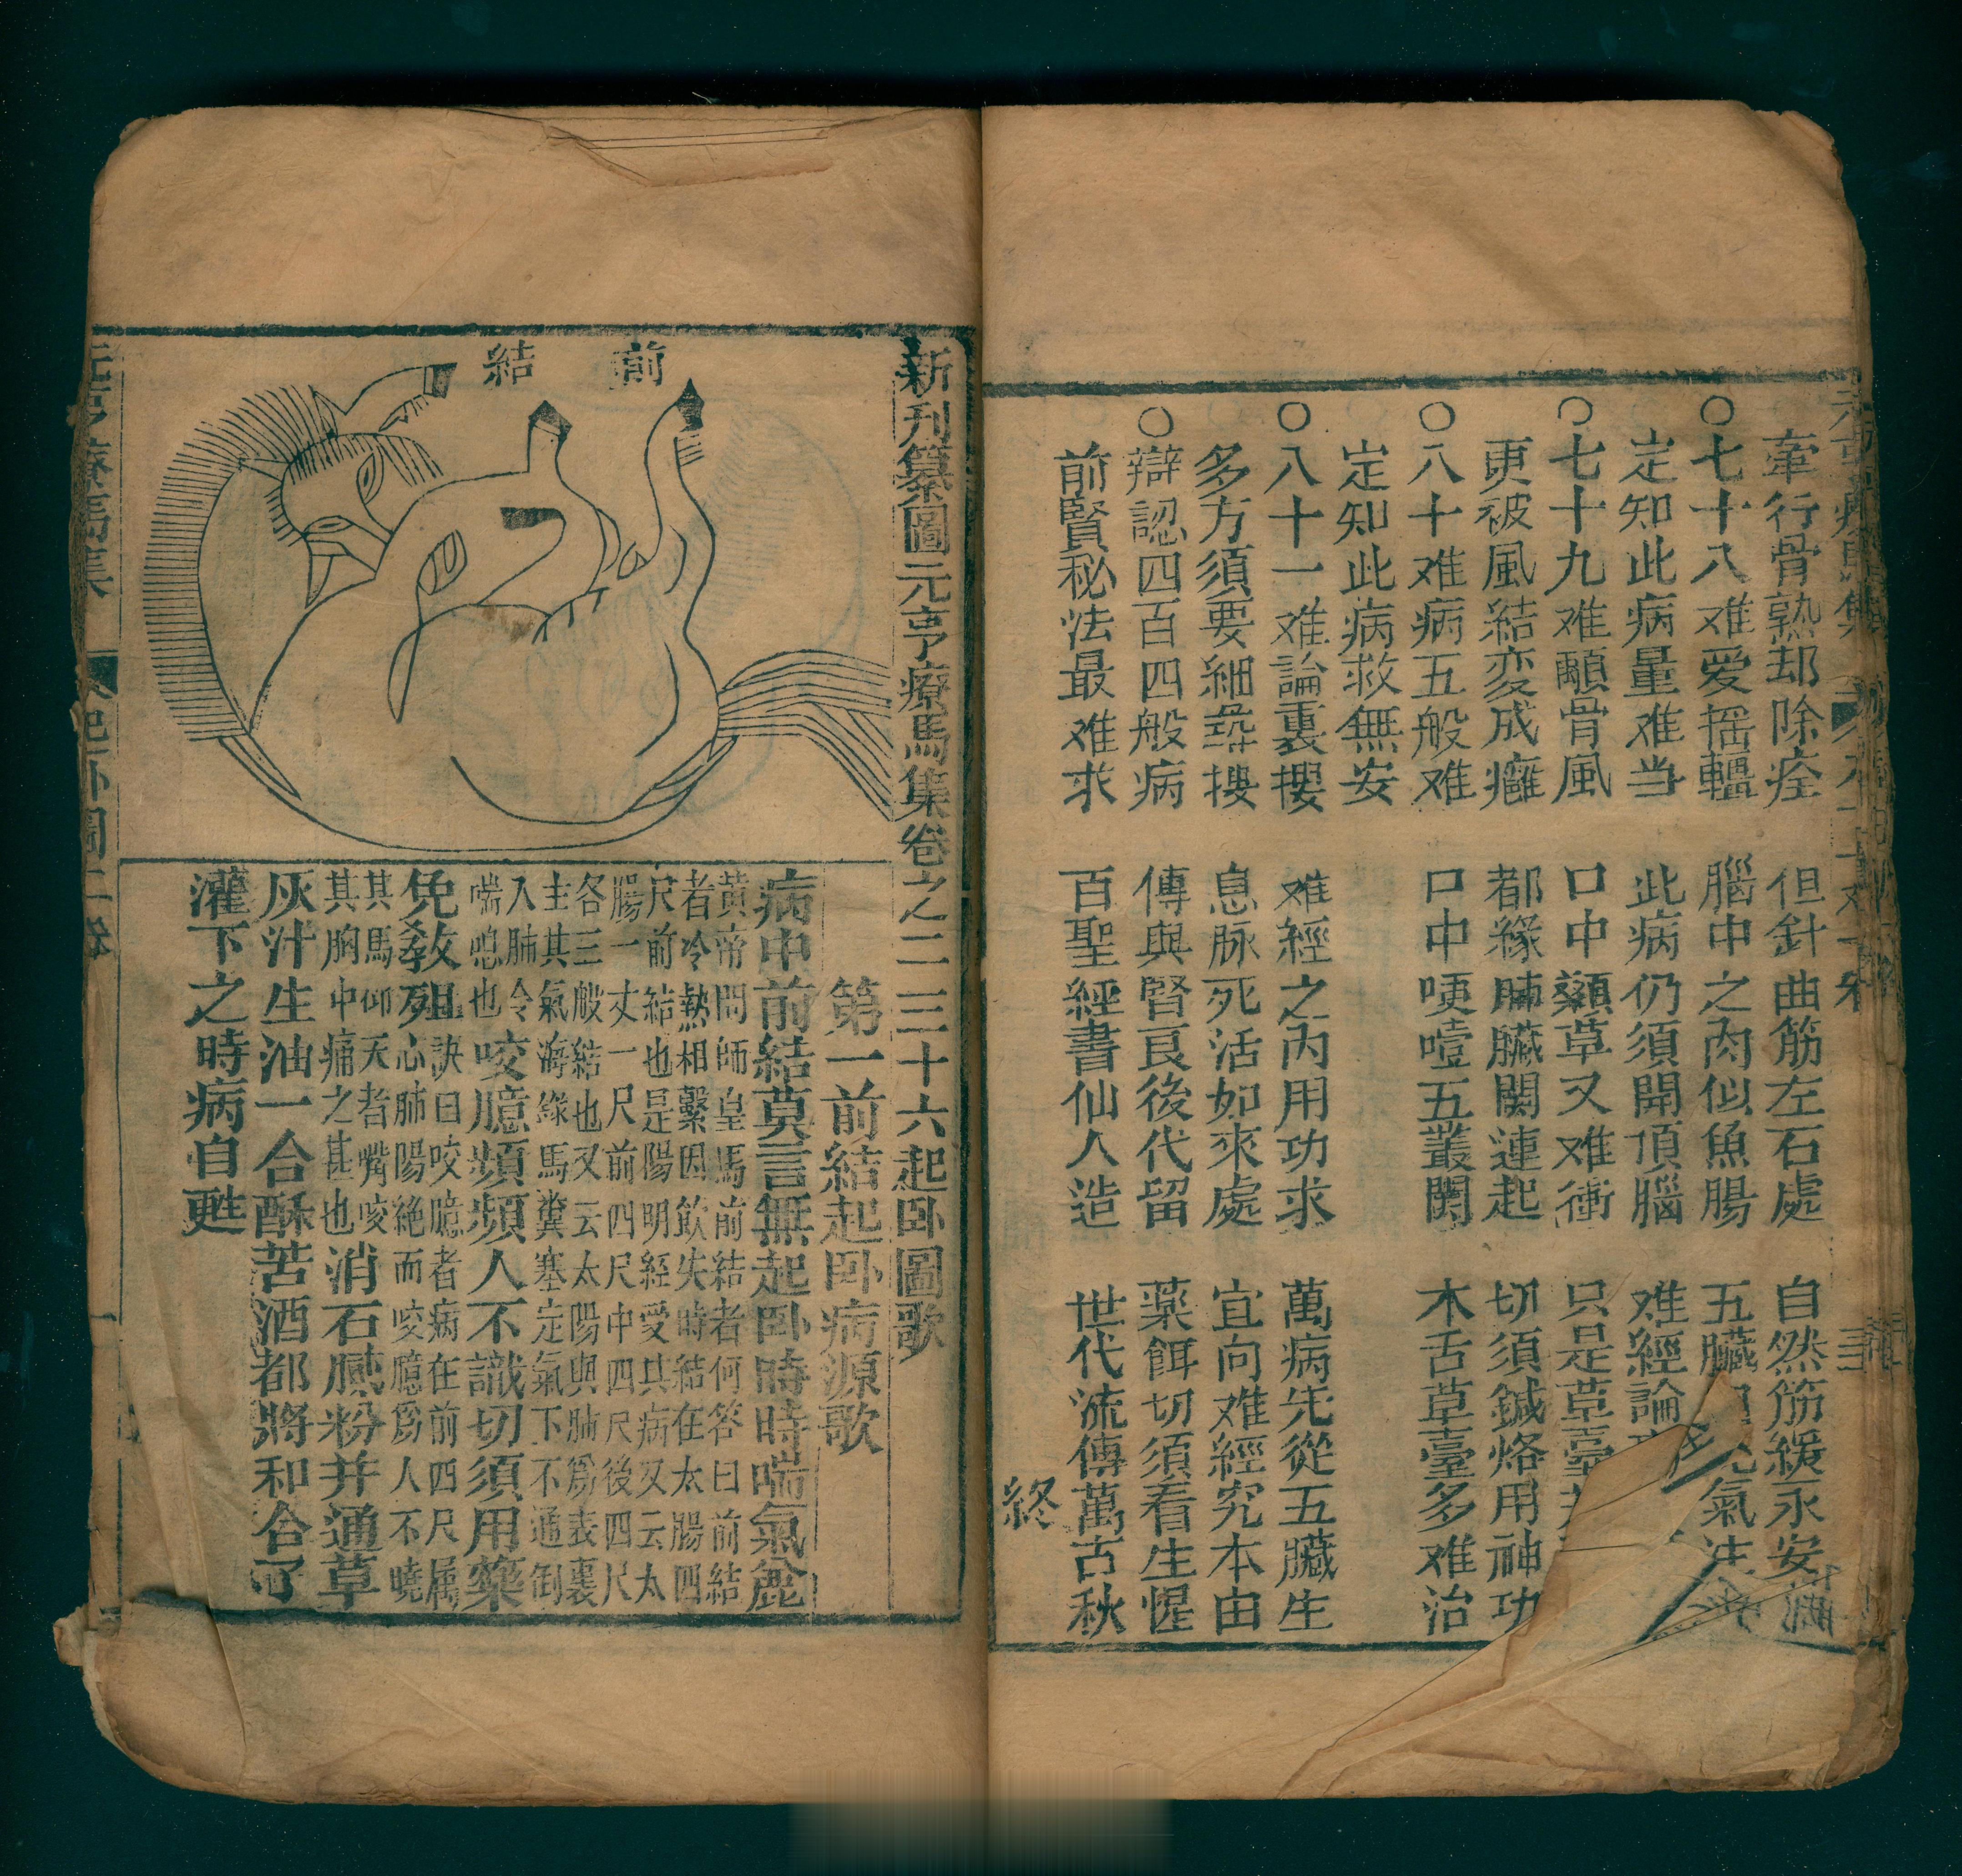 牽行骨熟却除痊　但針曲筋左右處　自然筋緩永安
○七十八难愛搖轀　腦中之肉似魚腸　五臟
定知此病量难当　此病仍須開頂腦　难經論
○七十九难顋骨風　口中顙草又难衝　只是草臺
更被風結変成癰　都緣肺臟関連起　切須鍼烙用神功
○八十难病五般难　口中哽噎五叢関　木舌草臺多难治
定知此病救無安
○八十一难論裏摆　难經之内用功求　萬病先從五臟生
多方須要細尋搜　息脉死活如來處　宜向难經究本由
○辯認四百四般病　傳與賢良後代留　藥餌切須看生惺
前賢秘法最难求　百聖經書仙人造　世代流傳萬古秋
終
新刊纂圖元亨療馬集卷之二三十六起卧圖歌
前結
第一前結起卧病源歌
病中前結莫言無起卧時時喘氣麄
黄帝問師皇馬前結者何答曰前結
者冷熱相繫因飲失時結在太腸四
尺前結也是陽明經受其病又云太
腸一丈一尺前四尺中四尺後四尺
各三般結也又云太陽與肺爲表裏
主其氣海緣馬糞塞定氣下不通倒
入肺令
喘息也
咬臆頻頻人不識切須用藥
免教殂
訣曰咬臆者病在前四尺属
心肺陽絕而咬臆爲人不曉
其馬仰天者嘴咬
其胸中痛之甚也
消石膩粉并通草
灰汁生油一合酥苦酒都將和合了
灌下之時病自甦
元亨療馬集　起卧圖二卷　一